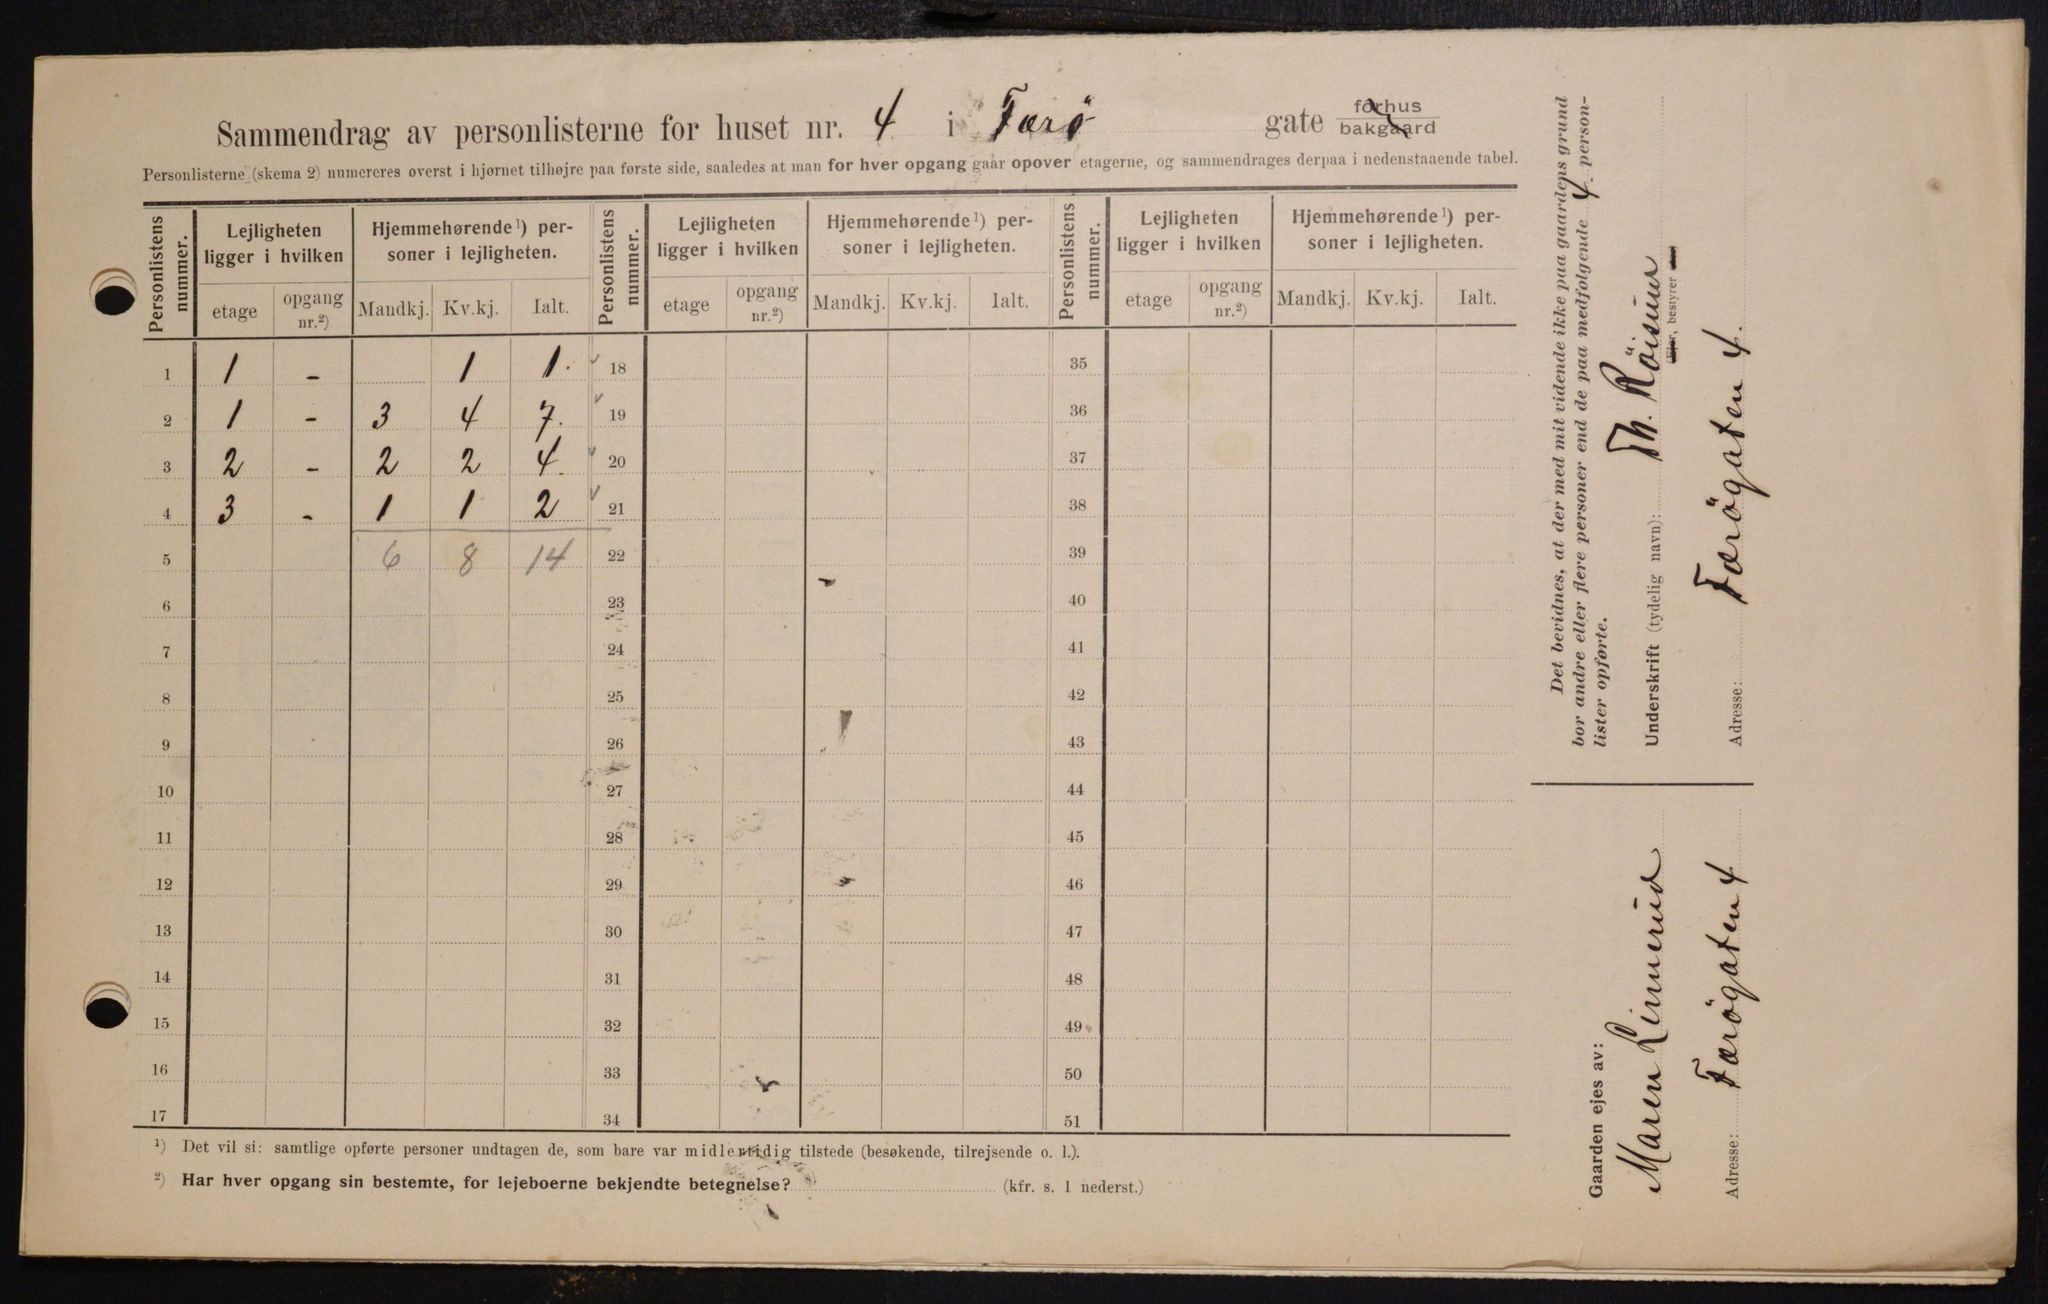 Sammendrag av personlisterne for huset nr. 4 i Færö gate forhus bakgaard
Personlisterne (skema 2) numereres øverst i hjørnet tilhøjre paa første side, saaledes at man for hver opgang gaar opover etagerne, og sammendrages derpaa i nedenstaaende tabel.
Personlistens nummer. Lejligheten ligger i hvilken Hjemmehørende¹) personer i lejligheten. Personlistens nummer. Lejligheten ligger i hvilken Hjemmehørende¹) personer i lejligheten. Personlistens nummer. Lejligheten ligger i hvilken Hjemmehørende¹) personer i lejligheten.
etage opgang nr.²) Mandkj. Kv.kj. Ialt. etage opgang nr.²) Mandkj. Kv.kj. Ialt. etage opgang nr.²) Mandkj. Kv.kj. Ialt.
1 1 - 1 1. 18 35
2 1 - 3 4 7. 19 36
3 2 - 2 2 4. 20 37
4 3 - 1 1 2 21 38
5 6 8 14 22 39
6 23 40
7 24 41
8 25 42
9 26 43
10 27 44
11 28 45
12 29 46
13 30 47
14 31 48
15 32 49
16 33 50
17 34 51
¹) Det vil si: samtlige opførte personer undtagen de, som bare var midlertidig tilstede (besøkende, tilrejsende o. l.).
²) Har hver opgang sin bestemte, for lejeboerne bekjendte betegnelse? (kfr. s. 1 nederst.)
Det bevidnes, at der med mit vidende ikke paa gaardens grund
bor andre eller flere personer end de paa medfølgende 4 person-
lister opførte.
Underskrift (tydelig navn): Th. Röisum
(Ejer, bestyrer
Adresse: Færögaten 4.
Gaarden ejes av:
Maren Linnerud
Adresse: Færögaten 4